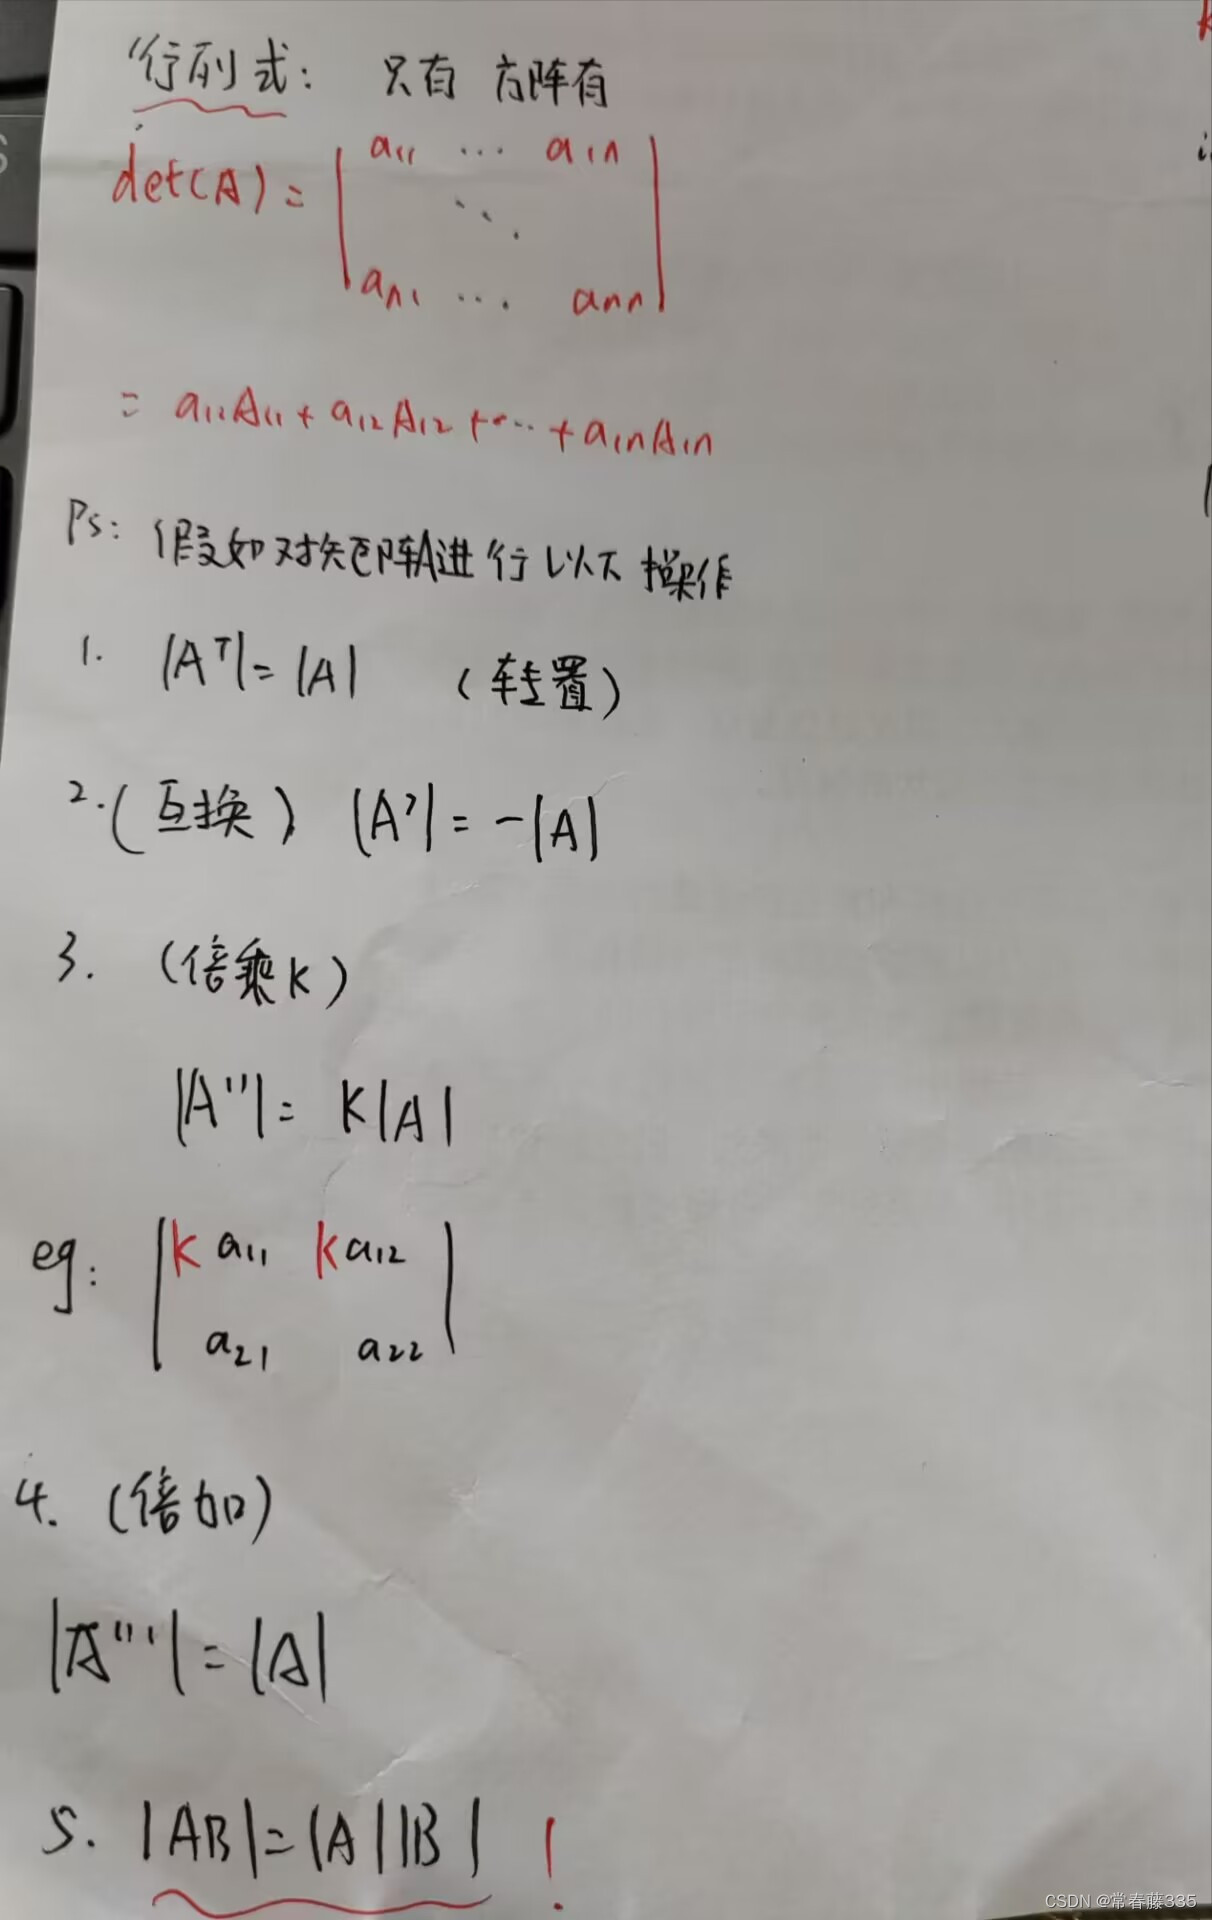 行列式： 只有 方阵有
det(A) = | a11 ... a1n
⋱
an1 ... ann |
= a11A11 + a12A12 + ... + a1nA1n
Ps: 假如对矩阵A进行以下操作
1. |Aᵀ| = |A| （转置）
2. （互换） |A'| = -|A|
3. （倍乘K）
|A''| = K|A|
eg: | K a11 K a12 |
a21 a22
4. （倍加）
|A'''| = |A|
5. |AB| = |A||B| !
CSDN @常春藤335